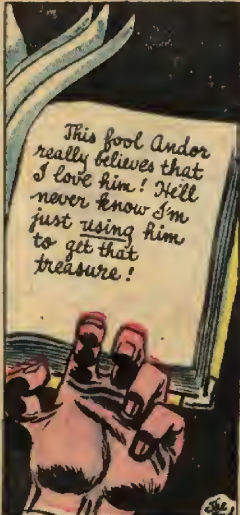 This fool Andor
really believes that
I love him! He'll
never know I'm
just using him
to get that
treasure!